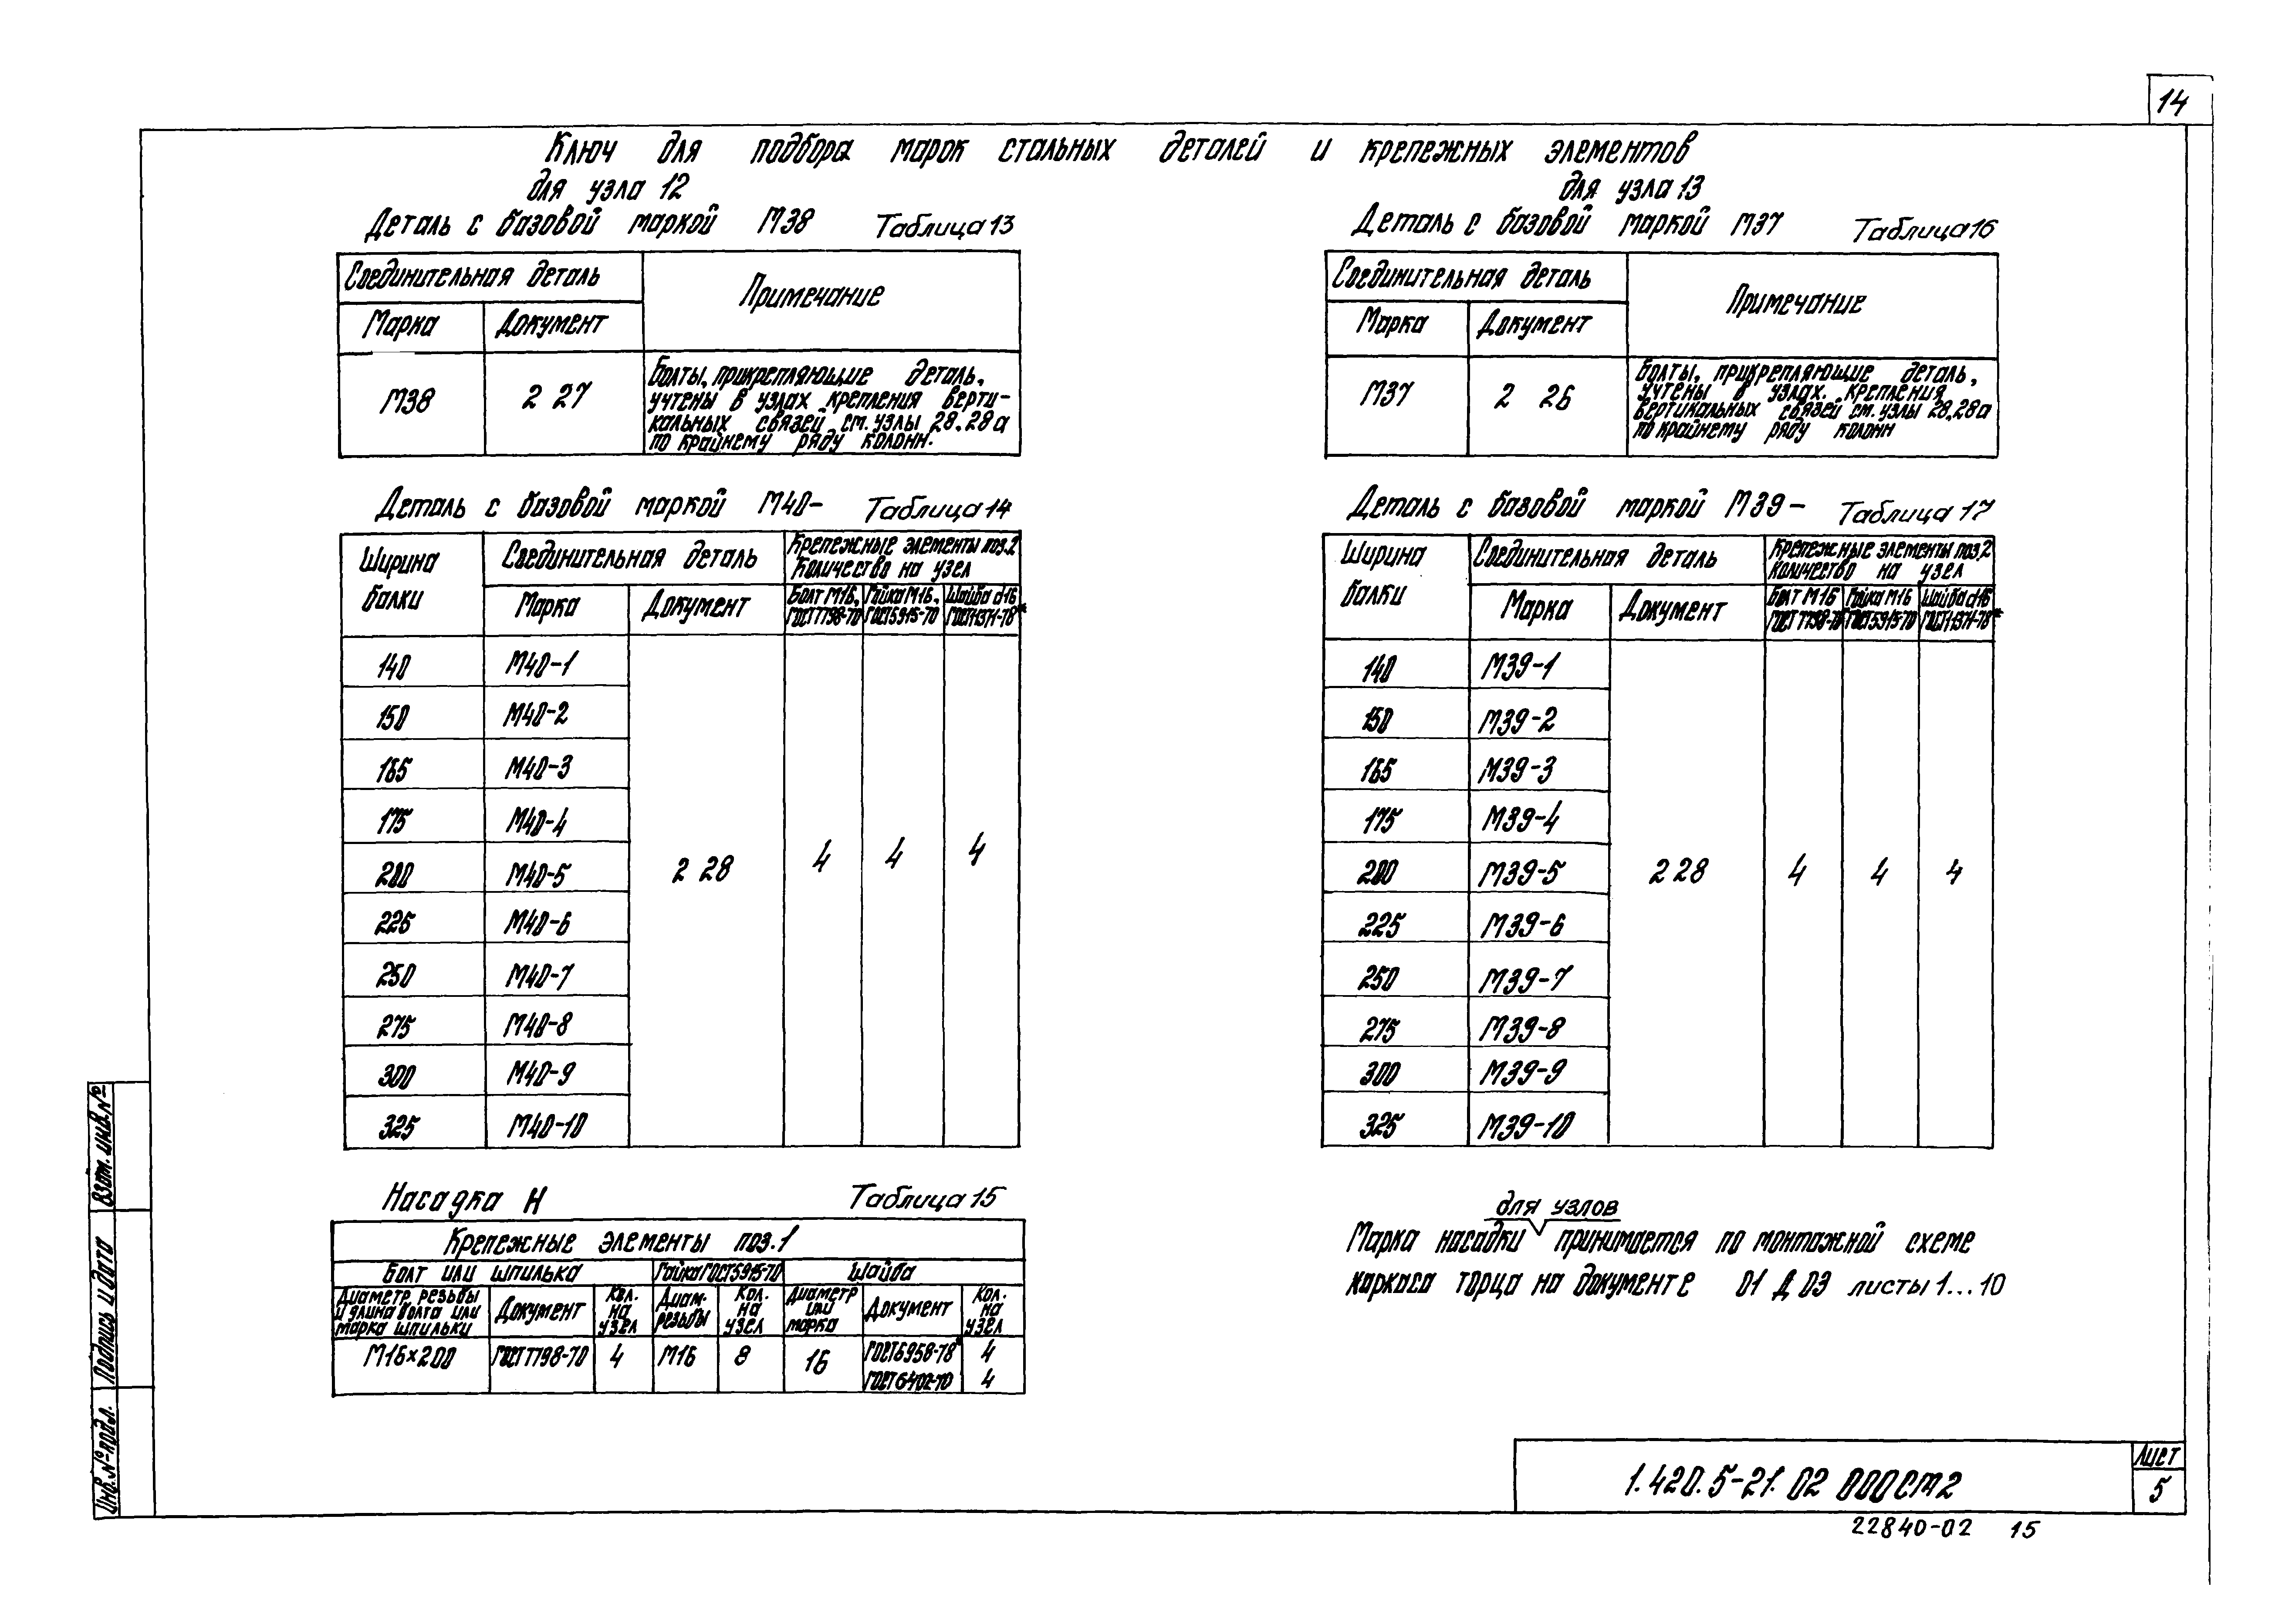 14
Ключ для подбора марок стальных деталей и крепежных элементов
для узла 12
Деталь с базовой маркой М38 Таблица 13
Соединительная деталь
Примечание
Марка Документ
М38 2 27
Болты, прикрепляющие деталь,
учтены в узлах крепления верти-
кальных связей см. узлы 28, 28а
по крайнему ряду колонн.
Деталь с базовой маркой М40- Таблица 14
Ширина балки
Соединительная деталь
Крепежные элементы поз.2
Количество на узел
Марка Документ
Болт М16, Гайка М16, Шайба d16
ГОСТ7798-70 ГОСТ5915-70 ГОСТ11371-78*
140 М40-1
150 М40-2
165 М40-3
175 М40-4
200 М40-5 2 28 4 4 4
225 М40-6
250 М40-7
275 М40-8
300 М40-9
325 М40-10
Насадка Н Таблица 15
Крепежные элементы поз.1
Болт или шпилька Гайка ГОСТ5915-70 Шайба
Диаметр резьбы
и длина болта или
марка шпильки
Документ
Кол.
на
узел
Диам.
резьбы
Кол.
на
узел
Диаметр
или
марка
Документ
Кол.
на
узел
М16×200 ГОСТ7798-70 4 М16 8 16 ГОСТ6958-78* 4
ГОСТ6402-70 4
для узла 13
Деталь с базовой маркой М37 Таблица 16
Соединительная деталь
Примечание
Марка Документ
М37 2 26
Болты, прикрепляющие деталь,
учтены в узлах. крепления
вертикальных связей см. узлы 28, 28а
по крайнему ряду колонн
Деталь с базовой маркой М39- Таблица 17
Ширина балки
Соединительная деталь
Крепежные элементы поз.2
количество на узел
Марка Документ
Болт М16 Гайка М16 Шайба d16
ГОСТ 7798-70 ГОСТ5915-70 ГОСТ11371-78*
140 М39-1
150 М39-2
165 М39-3
175 М39-4
200 М39-5 2 28 4 4 4
225 М39-6
250 М39-7
275 М39-8
300 М39-9
325 М39-10
для узлов
Марка насадки принимается по монтажной схеме
каркаса торца на документе 01 Д 03 листы 1...10
Взам. инв.№
Подпись и дата
Инв.№ подл.
1.420.5-21.02 000СМ2
Лист
5
22840-02 15